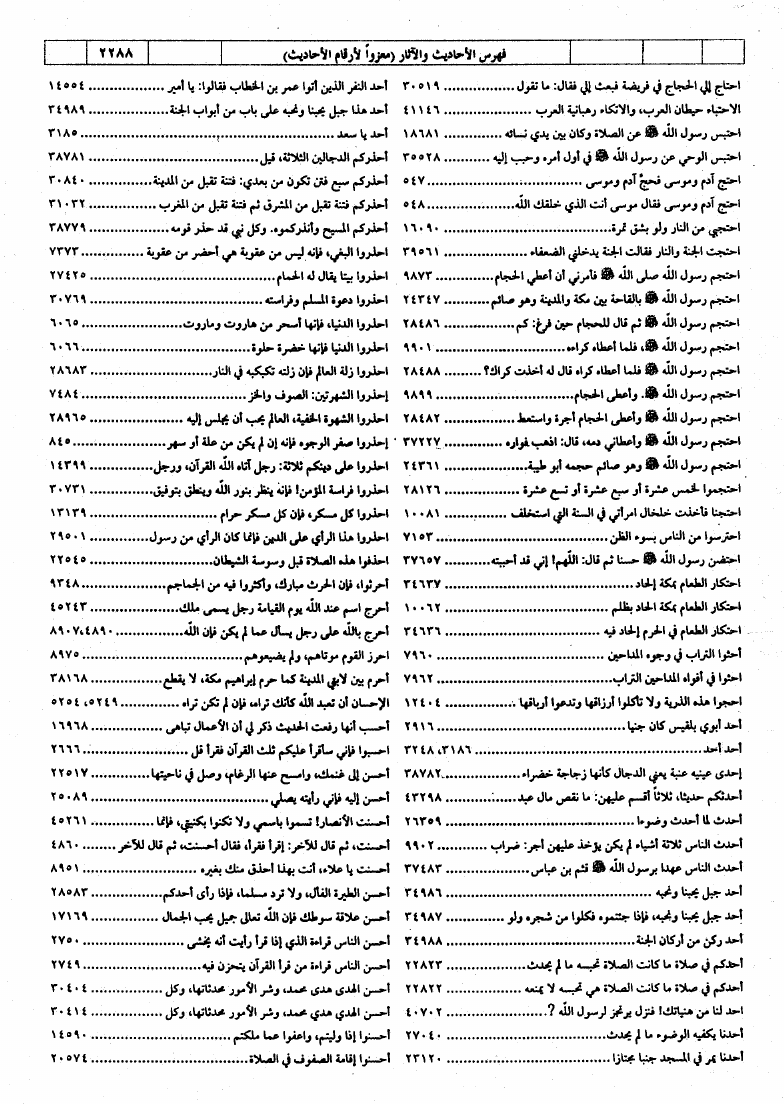 فهرس الأحاديث والآثار (معزواً لأرقام الأحاديث)
٢٢٨٨
احتاج إلي الحجاج في فريضة فبعث إلي فقال: ما تقول ................ ٣٠٥١٩
الاحتباء حيطان العرب، والاتكاء رهبانية العرب ................ ٤١١٤٦
احتبس رسول الله ﷺ عن الصلاة وكان بين يدي نسائه ................ ١٨٦٨١
احتبس الوحي عن رسول الله ﷺ في أول أمره وحبب إليه ................ ٣٥٥٢٨
احتج آدم وموسى فحج آدم وموسى ................ ٥٤٧
احتج آدم وموسى فقال موسى أنت الذي خلقك الله ................ ٥٤٨
احتجبي من النار ولو بشق تمرة ................ ١٦٠٩٠
احتجت الجنة والنار فقالت الجنة يدخلني الضعفاء ................ ٣٩٥٦١
احتجم رسول الله صلى الله ﷺ فأمرني أن أعطي الحجام ................ ٩٨٧٣
احتجم رسول الله ﷺ بالقاحة بين مكة والمدينة وهو صائم ................ ٢٤٣٤٧
احتجم رسول الله ﷺ ثم قال للحجام حين فرغ: كم ................ ٢٨٤٨٦
احتجم رسول الله ﷺ، فلما أعطاه كراءه ................ ٩٩٠١
احتجم رسول الله ﷺ فلما أعطاه كراه قال له أخذت كراك؟ ................ ٢٨٤٨٨
احتجم رسول الله ﷺ. وأعطى الحجام ................ ٩٨٩٩
احتجم رسول الله ﷺ وأعطى الحجام أجرة واستعط ................ ٢٨٤٨٢
احتجم رسول الله ﷺ وأعطاني دمه، قال: اذهب فواره ................ ٣٧٢٢٧
احتجم رسول الله ﷺ وهو صائم حجمه أبو طيبة ................ ٢٤٣٦١
احتجموا لخمس عشرة أو سبع عشرة أو تسع عشرة ................ ٢٨١٢٦
احتجنا فأخذت خلخال امرأتي في السنة التي استخلف ................ ١٠٠٨١
احترسوا من الناس بسوء الظن ................ ٧١٥٣
احتضن رسول الله ﷺ حسنا ثم قال: اللهم! إني قد أحببته ................ ٣٧٦٥٧
احتكار الطعام بمكة إلحاد ................ ٣٤٦٣٧
احتكار الطعام بمكة الحاد بظلم ................ ١٠٠٦٢
احتكار الطعام في الحرم إلحاد فيه ................ ٣٤٦٣٦
أحثوا التراب في وجوه المداحين ................ ٧٩٦٠
احثوا في أفواه المداحين التراب ................ ٧٩٦٢
احجوا هذه الذرية ولا تأكلوا أرزاقها وتدعوا أرباقها ................ ١٢٤٠٤
أحد أبوي بلقيس كان جنيا ................ ٢٩١٦
أحد أحد ................ ٣١٨٦، ٣٢٤٨
إحدى عينيه عنبة يعني الدجال كأنها زجاجة خضراء ................ ٣٨٧٨٢
أحدثكم حديثا، ثلاثاً أقسم عليهن: ما نقص مال عبد ................ ٤٣٢٩٨
أحدث لما أحدث وضوءا ................ ٢٦٣٥٩
أحدث الناس ثلاثة أشياء لم يكن يؤخذ عليهن أجر: ضراب ................ ٩٩٠٢
أحدث الناس عهدا برسول الله ﷺ قثم بن عباس ................ ٣٧٤٨٣
أحد جبل يحبنا ونحبه ................ ٣٤٩٨٦
أحد جبل يحبنا ونحبه، فإذا جئتموه فكلوا من شجره ولو ................ ٣٤٩٨٧
أحد ركن من أركان الجنة ................ ٣٤٩٨٨
أحدكم في صلاة ما كانت الصلاة تحبسه ما لم يحدث ................ ٢٢٨٢٣
أحدكم في صلاة ما كانت الصلاة هي تحبسه لا يمنعه ................ ٢٢٨٢٢
احد لنا من هنياتك! فنزل يرتجز لرسول الله ؟ ................ ٤٠٧٠٢
أحدنا يكفيه الوضوء ما لم يحدث ................ ٢٧٠٤٠
أحدنا يمر في المسجد جنبا مجتازا ................ ٢٣١٢٠
أحد النفر الذين أتوا عمر بن الخطاب فقالوا: يا أمير ................ ١٤٥٥٤
أحد هذا جبل يحبنا ونحبه على باب من أبواب الجنة ................ ٣٤٩٨٩
أحد يا سعد ................ ٣١٨٥
أحذركم الدجالين الثلاثة، قيل ................ ٣٨٧٨١
أحذركم سبع فتن تكون من بعدي: فتنة تقبل من المدينة ................ ٣٠٨٤٠
أحذركم فتنة تقبل من المشرق ثم فتنة تقبل من المغرب ................ ٣١٠٣٢
أحذركم المسيح وأنذركموه. وكل نبي قد حذر قومه ................ ٣٨٧٧٩
احذروا البغي، فإنه ليس من عقوبة هي أحضر من عقوبة ................ ٧٣٧٣
احذروا بيتا يقال له الحمام ................ ٢٧٤٢٥
احذروا دعوة المسلم وفراسته ................ ٣٠٧٦٩
احذروا الدنيا، فإنها أسحر من هاروت وماروت ................ ٦٠٦٥
احذروا الدنيا فإنها خضرة حلوة ................ ٦٠٦٦
احذروا زلة العالم فإن زلته تكبكبه في النار ................ ٢٨٦٨٣
إحذروا الشهرتين: الصوف والخز ................ ٧٤٨٤
احذروا الشهوة الخفية، العالم يحب أن يجلس إليه ................ ٢٨٩٦٥
إحذروا صفر الوجوه فإنه إن لم يكن من علة أو سهر ................ ٨٤٥
احذروا على دينكم ثلاثة: رجل آتاه الله القرآن، ورجل ................ ١٤٣٩٩
احذروا فراسة المؤمن! فإنه ينظر بنور الله وينطق بتوفيق ................ ٣٠٧٣١
احذروا كل مسكر، فإن كل مسكر حرام ................ ١٣١٣٩
احذروا هذا الرأي على الدين فإنما كان الرأي من رسول ................ ٢٩٥٠١
احذفوا هذه الصلاة قبل وسوسة الشيطان ................ ٢٢٥٤٥
أحرثوا، فإن الحرث مبارك، وأكثروا فيه من الجماجم ................ ٩٣٤٨
أحرج اسم عند الله يوم القيامة رجل يسمى ملك ................ ٤٥٢٤٣
أحرج بالله على رجل يسأل عما لم يكن فإن الله ................ ٤٨٩٠، ٨٩٠٧
احرز القوم موتاهم، ولم يضيعوهم ................ ٨٩٧٥
أحرم بين لابتي المدينة كما حرم إبراهيم مكة، لا يقطع ................ ٣٨١٦٨
الإحسان أن تعبد الله كأنك تراه، فإن لم تكن تراه ................ ٥٢٤٩، ٥٢٥٤
أحسب أنها رفعت الحديث ذكر لي أن الأعمال تباهى ................ ١٦٩٦٨
احسبوا فإني سأقرأ عليكم ثلث القرآن فقرأ قل ................ ٢٦٦٦
أحسن إلى غنمك، وامسح عنها الرغام، وصل في ناحيتها ................ ٢٢٥١٧
أحسن إليه فإني رأيته يصلي ................ ٢٥٠٨٩
أحسنت الأنصار! تسموا باسمي ولا تكنوا بكنيتي، فإنما ................ ٤٥٢٦١
أحسنت، ثم قال للآخر: إقرأ فقرأ، فقال أحسنت، ثم قال للآخر ................ ٤٨٦٠
أحسنت يا علاء، أنت بهذا أحذق منك بغيره ................ ٨٩٥١
أحسن الطيرة الفأل، ولا ترد مسلما، فإذا رأى أحدكم ................ ٢٨٥٨٣
أحسن علاقة سوطك فإن الله تعالى جميل يحب الجمال ................ ١٧١٦٩
أحسن الناس قراءة الذي إذا قرأ رأيت أنه يخشى ................ ٢٧٥٠
أحسن الناس قراءة من قرأ القرآن يتحزن فيه ................ ٢٧٤٩
أحسن الهدى هدى محمد، وشر الأمور محدثاتها، وكل ................ ٣٠٤٠٤
أحسن الهدي هدي محمد، وشر الأمور محدثاتها، وكل ................ ٣٠٤١٤
أحسنوا إذا وليتم، واعفوا عما ملكتم ................ ١٤٥٩٠
أحسنوا إقامة الصفوف في الصلاة ................ ٢٠٥٧٤